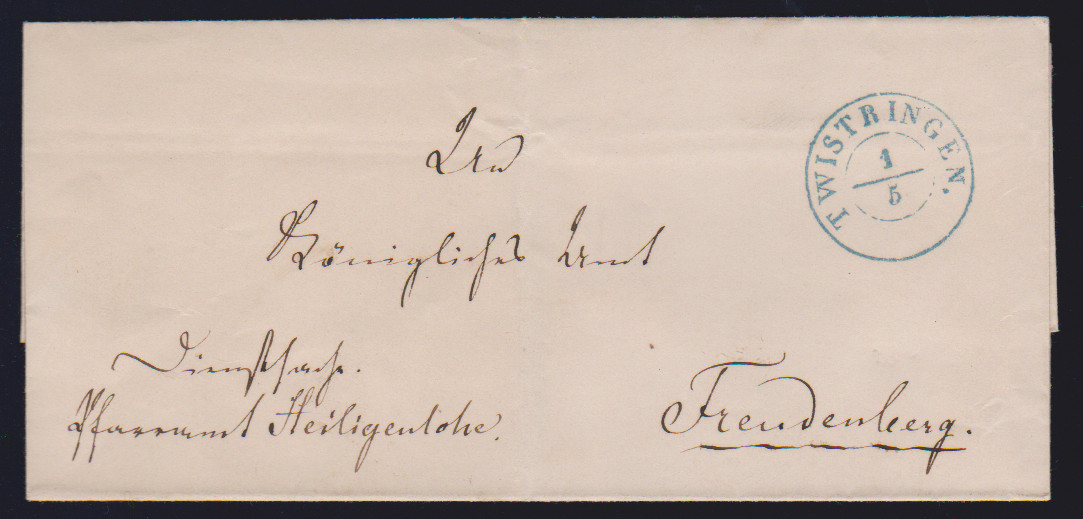 TWISTRINGEN.
1
5
An
Königliches Amt
Dienstsache.
Pfarramt Heiligenlohe.
Freudenberg.